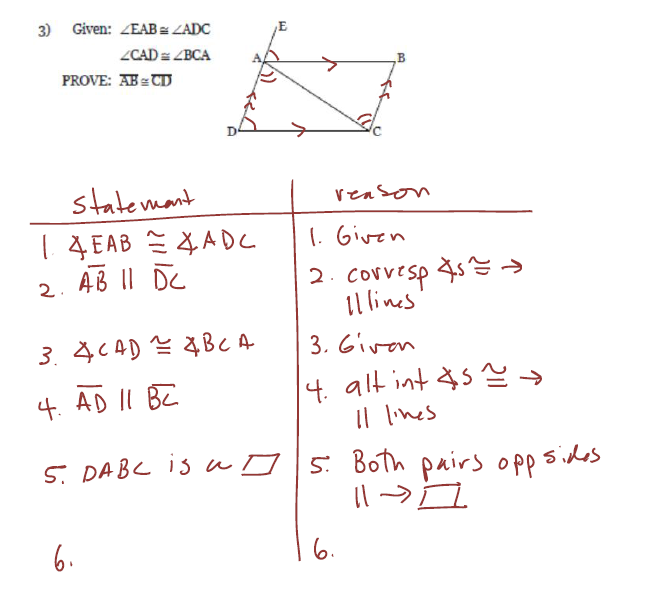 3) Given: ∠EAB ≅ ∠ADC
∠CAD ≅ ∠BCA
PROVE: A̅B̅ ≅ C̅D̅
E
A
B
D
C
statement
reason
1. ∡EAB ≅ ∡ADC
1. Given
2. A̅B̅ || D̅C̅
2. corresp ∡s ≅ →
|| lines
3. ∡CAD ≅ ∡BCA
3. Given
4. A̅D̅ || B̅C̅
4. alt int ∡s ≅ →
|| lines
5. DABC is a ▱
5. Both pairs opp sides
|| → ▱
6.
6.